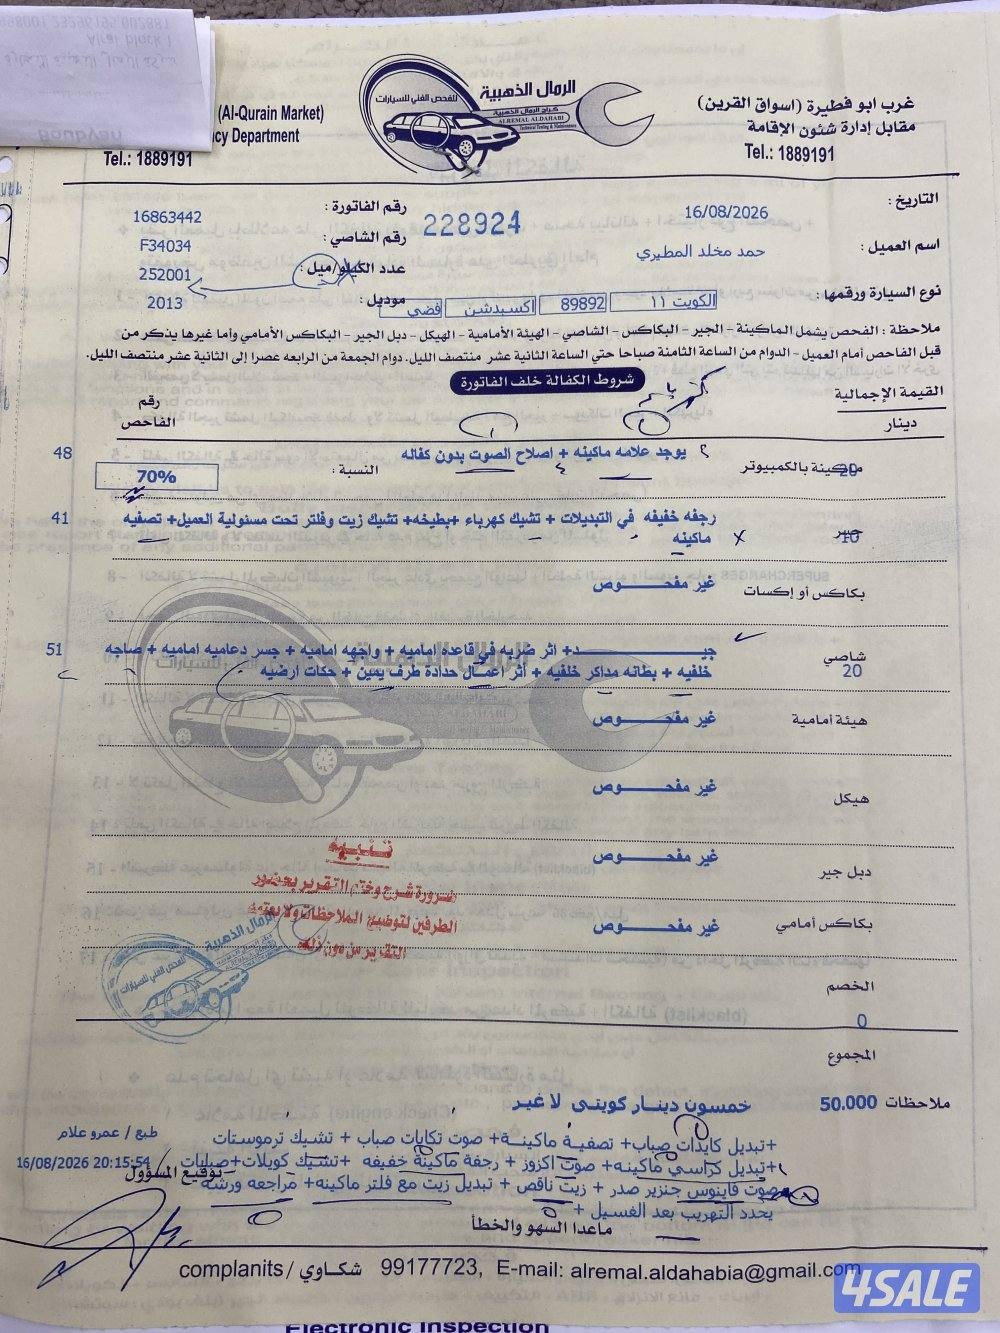 (Al-Qurain Market)
cy Department
Tel.: 1889191
للفحص الفني للسيارات
الرمال الذهبية
كراج الرمال الذهبية
ALREMAL ALDAHABI
Technical Testing & Maintenance
غرب ابو فطيرة (اسواق القرين)
مقابل إدارة شئون الإقامة
Tel.: 1889191
التاريخ : 16/08/2026
228924
رقم الفاتورة : 16863442
رقم الشاصي : F34034
اسم العميل : حمد مخلد المطيري
عدد الكيلو/ميل : 252001
نوع السيارة ورقمها : الكويت ١١ 89892 اكسبدشن فضي
موديل : 2013
ملاحظة : الفحص يشمل الماكينة - الجير - البكاكس - الشاصي - الهيئة الأمامية - الهيكل - دبل الجير - البكاكس الأمامي وأما غيرها يذكر من
قبل الفاحص أمام العميل - الدوام من الساعة الثامنة صباحا حتي الساعة الثانية عشر منتصف الليل. دوام الجمعة من الرابعه عصرا إلى الثانية عشر منتصف الليل.
شروط الكفالة خلف الفاتورة
القيمة الإجمالية
دينار
رقم
الفاحص
ماكينة بالكمبيوتر
20
يوجد علامه ماكينه + اصلاح الصوت بدون كفاله
48
النسبة : 70%
جير
10
رجفه خفيفه في التبديلات + تشيك كهرباء +بطيخه+ تشيك زيت وفلتر تحت مسئولية العميل+ تصفيه
ماكينه
41
بكاكس أو إكسات
غير مفحـــــوص
شاصي
20
جيـــــد+ اثر ضربه في قاعده اماميه + واجهه اماميه + جسر دعاميه اماميه + صاجه
خلفيه + بطانه مداكر خلفيه + أثر اعمال حدادة طرف يمين + حكات ارضيه
51
هيئة أمامية
غير مفحـــــوص
هيكل
غير مفحـــــوص
دبل جير
غير مفحـــــوص
بكاكس أمامي
غير مفحـــــوص
تنبيه
ضرورة شرح وختم التقرير بحضور
الطرفين لتوضيح الملاحظات ولا يعتمد
التقرير من دون ذلك
الخصم
0
المجموع
50.000
ملاحظات
خمسون دينار كويتى لا غير
+تبديل كايدات صباب+ تصفية ماكينة+ صوت تكايات صباب + تشيك ترموستات
+تبديل كراسي ماكينه+ صوت اكزوز + رجفة ماكينة خفيفه +تشيك كويلات+صبابات
صوت فاينوس جنزير صدر + زيت ناقص + تبديل زيت مع فلتر ماكينه+ مراجعه ورشة
يحدد التهريب بعد الغسيل +
ماعدا السهو والخطأ
طبع / عمرو علام
16/08/2026 20:15:54
توقيع المسؤول
complanits / شكاوي 99177723, E-mail: alremal.aldahabia@gmail.com
4SALE
Electronic Inspection